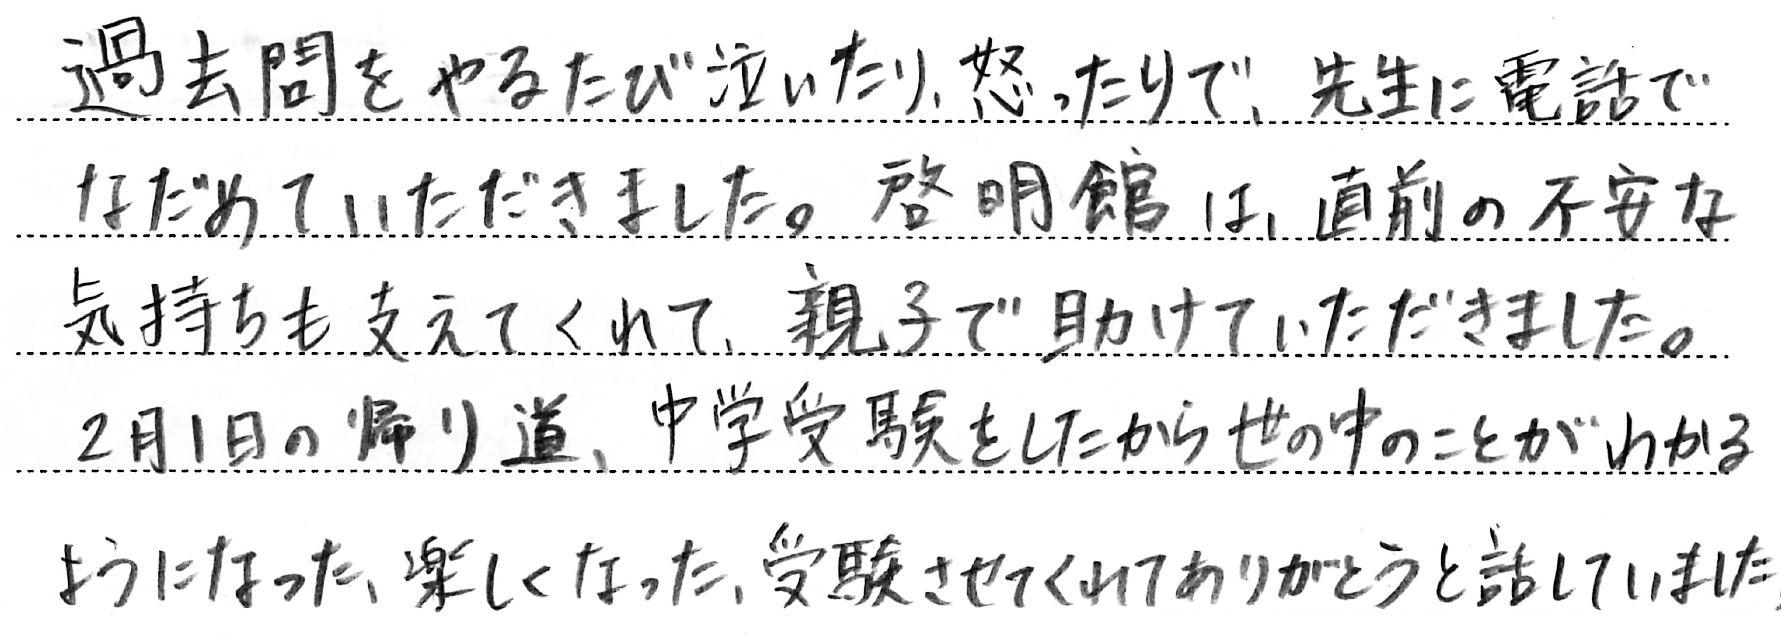 過去問をやるたび泣いたり、怒ったりで、先生に電話で
なだめていただきました。啓明館は、直前の不安な
気持ちも支えてくれて、親子で助けていただきました。
2月1日の帰り道、中学受験をしたから世の中のことがわかる
ようになった、楽しくなった、受験させてくれてありがとうと話していました。